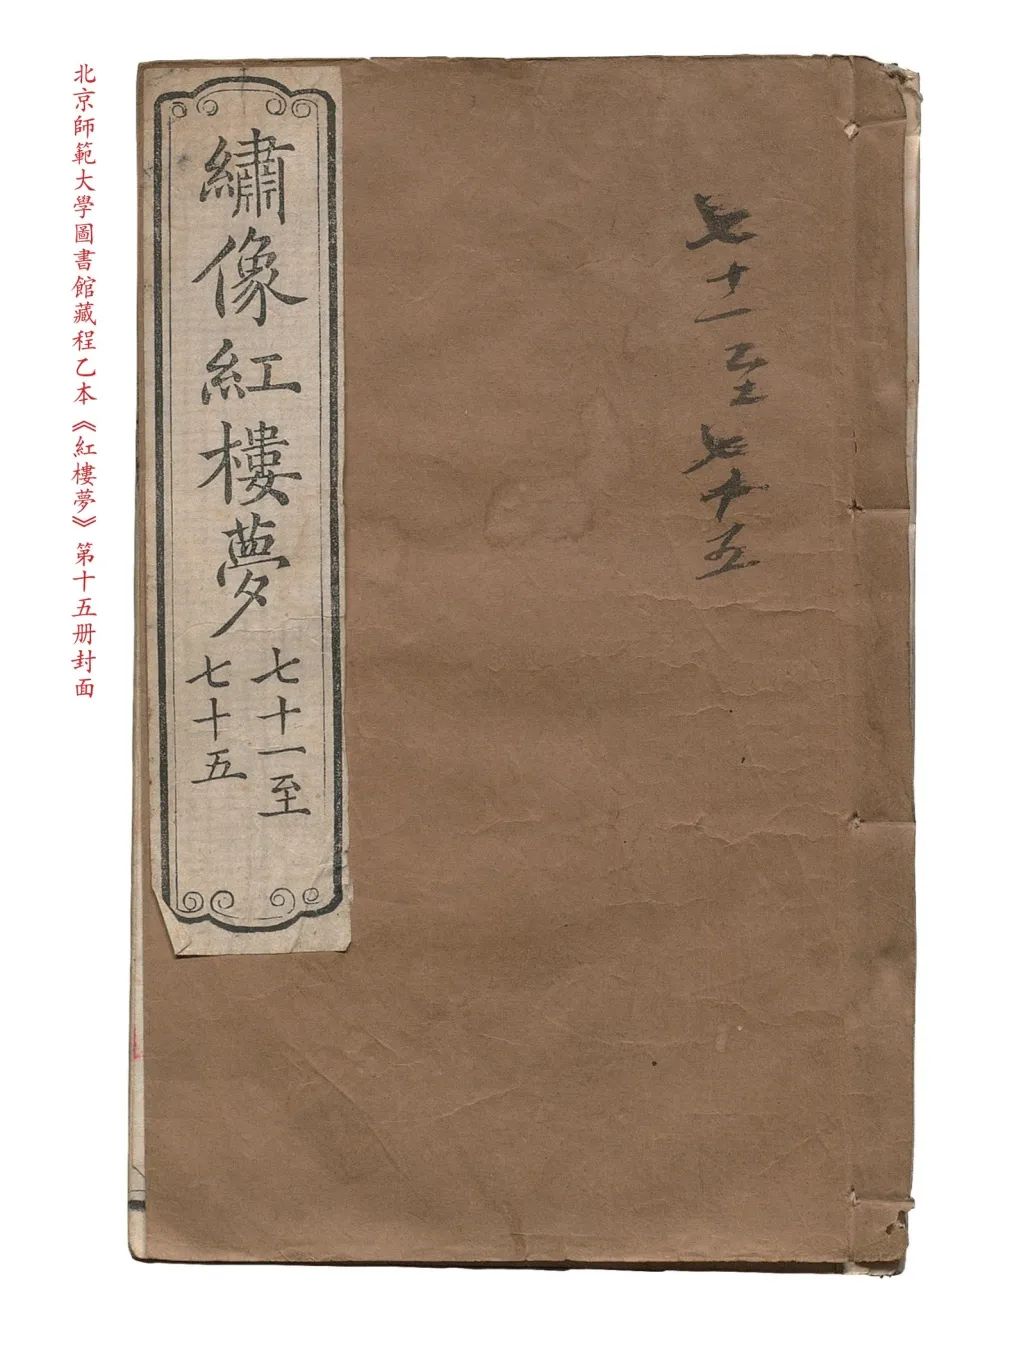 七十一至
七十五
繡像紅樓夢
七十一至
七十五
北京師範大學圖書館藏程乙本《紅樓夢》第十五册封面